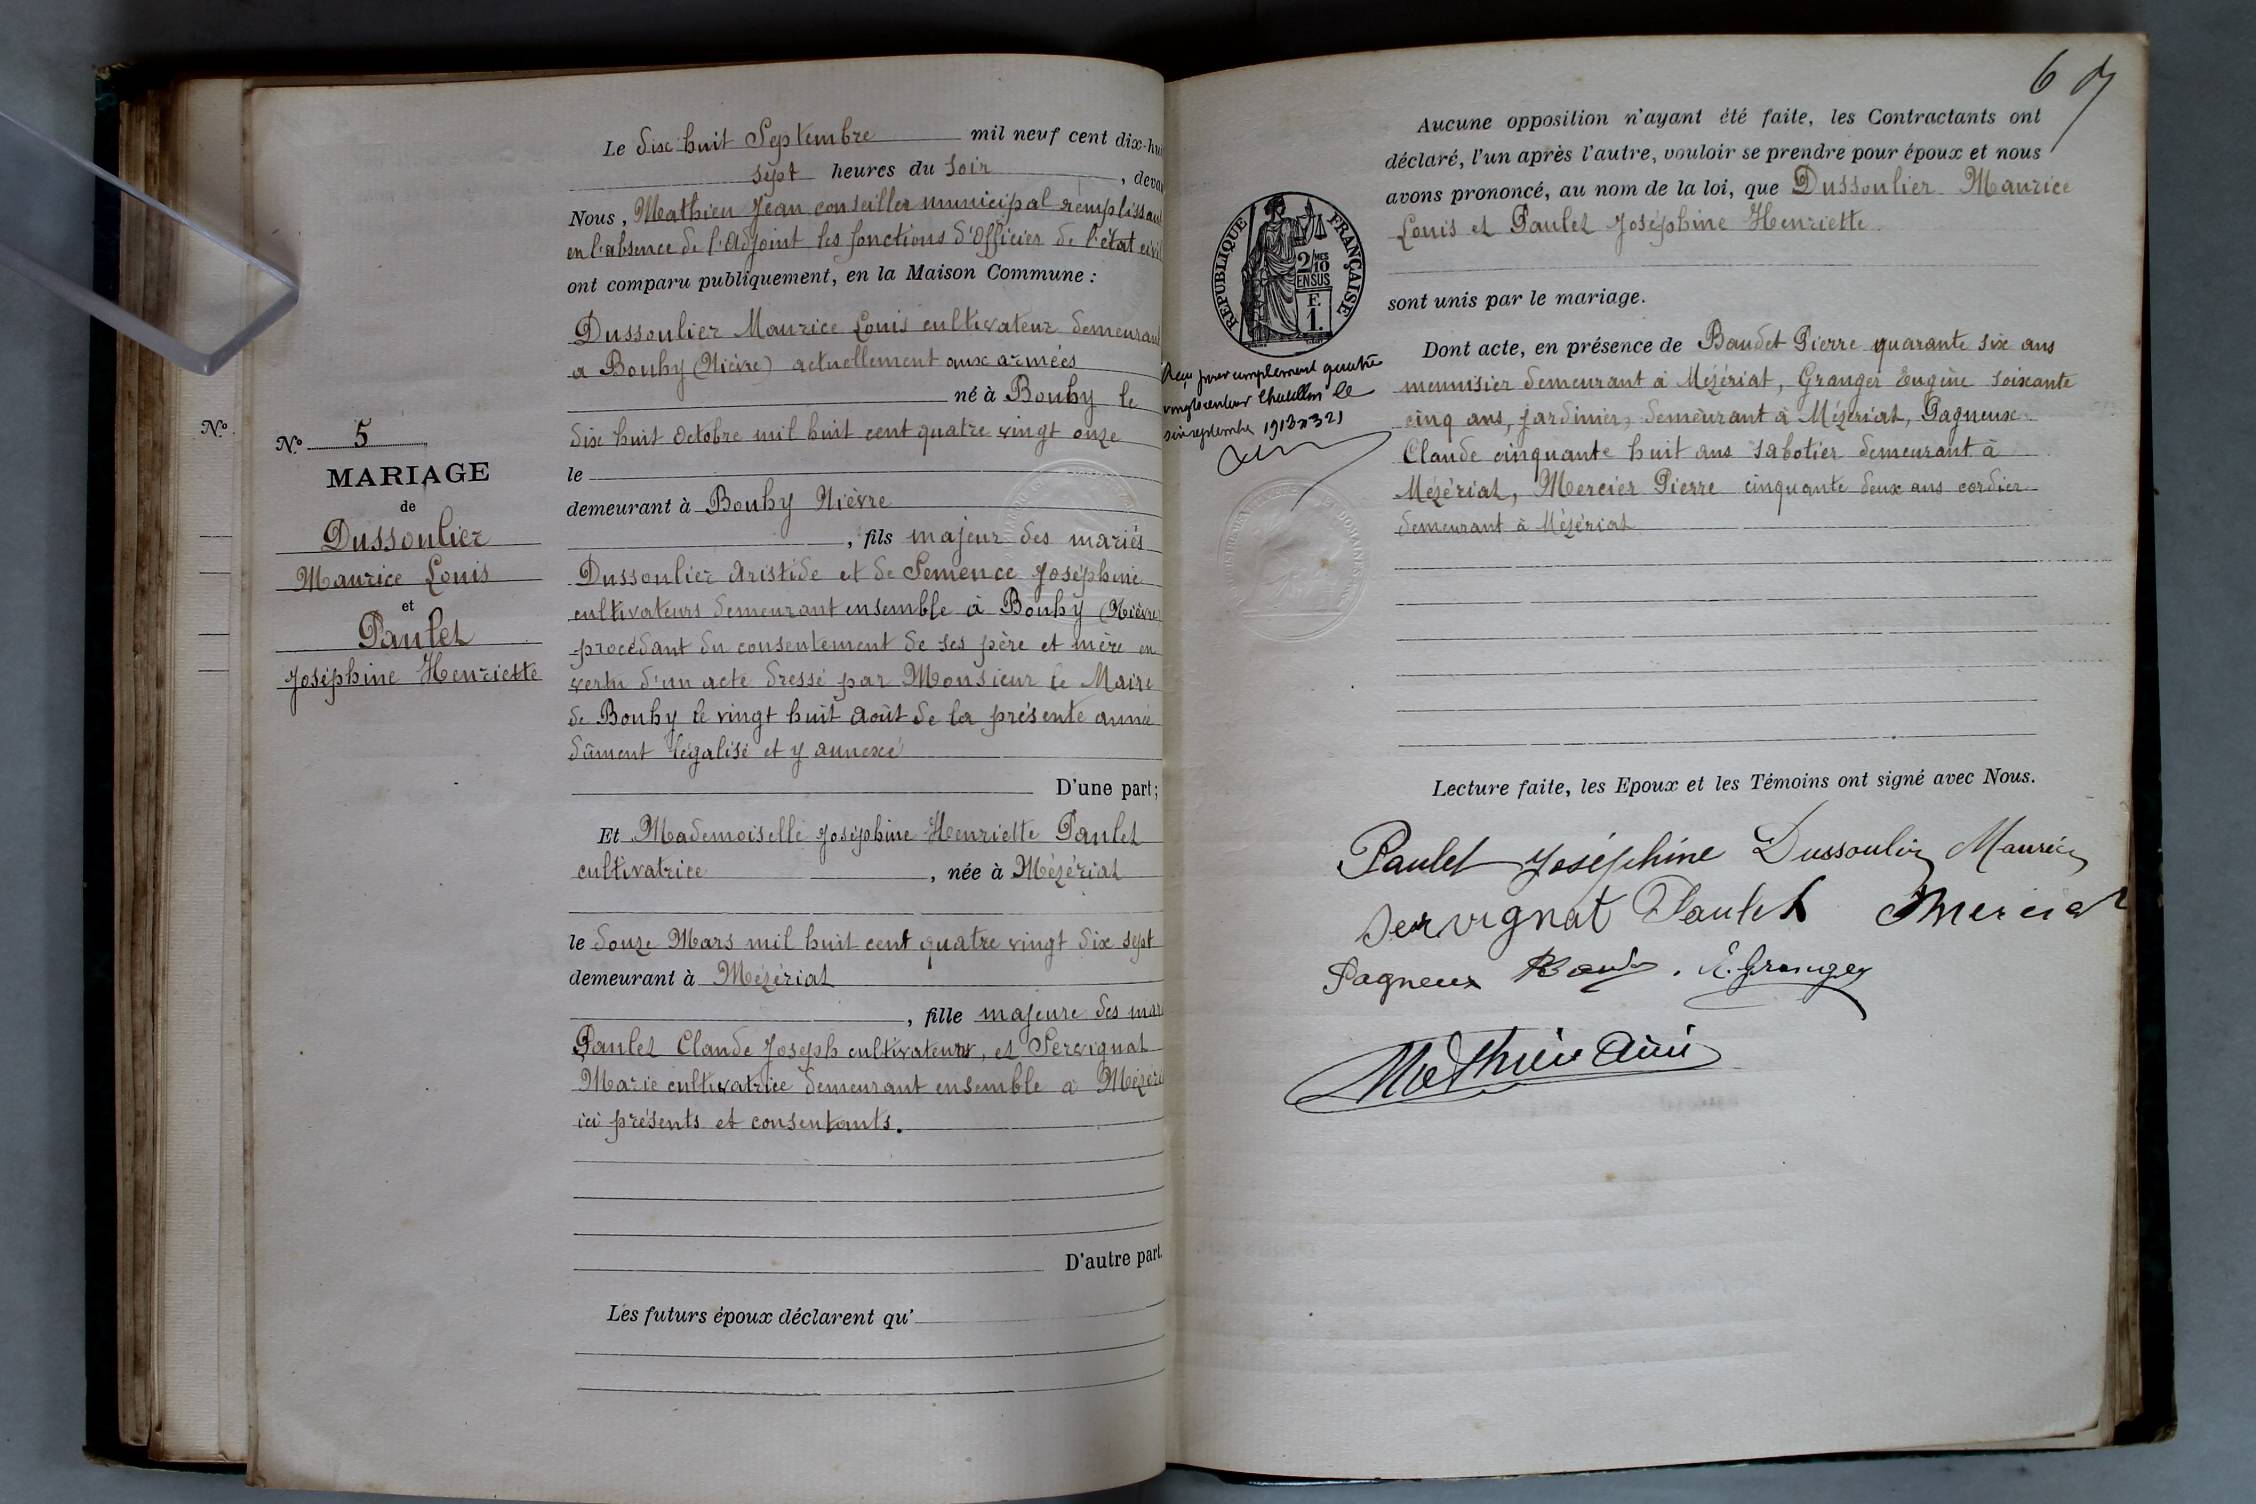 N°
N° 5
MARIAGE
de
Dussoulier
Maurice Louis
et
Paulet
Joséphine Henriette
Le dix huit Septembre mil neuf cent dix-hu
sept heures du soir, deva
Nous, Mathieu Jean conseiller municipal remplissant
en l'absence de l'Adjoint les fonctions d'Officier de l'état civil
ont comparu publiquement, en la Maison Commune :
Dussoulier Maurice Louis cultivateur demeurant
a Bouhy (Nièvre) actuellement aux armées
né à Bouhy le
dix huit Octobre mil huit cent quatre vingt onze
le
demeurant à Bouhy Nièvre
, fils majeur des mariés
Dussoulier Aristide et de Semence Joséphine
cultivateurs demeurant ensemble à Bouhy (Nièvre
procédant du consentement de ses père et mère en
vertu d'un acte dressé par Monsieur le Maire
de Bouhy le vingt huit Août de la présente année
dûment légalisé et y annexé
D'une part;
Et Mademoiselle Joséphine Henriette Paulet
cultivatrice, née à Mézériat
le douze Mars mil huit cent quatre vingt dix sept
demeurant à Mézériat
, fille majeure des mari
Paulet Claude Joseph cultivateur, et Servignat
Marie cultivatrice demeurant ensemble a Mézéri
ici présents et consentants.
D'autre part.
Les futurs époux déclarent qu'
6
Aucune opposition n'ayant été faite, les Contractants ont
déclaré, l'un après l'autre, vouloir se prendre pour époux et nous
avons prononcé, au nom de la loi, que Dussoulier Maurice
Louis et Paulet Joséphine Henriette
sont unis par le mariage.
RÉPUBLIQUE FRANÇAISE
2/10 MES
EN SUS
F.
1.
Reçu pour complément quatre
vingt centimes Chatillon le
six septembre 1918 n° 321
Dont acte, en présence de Baudet Pierre quarante six ans
menuisier demeurant à Mézériat, Granger Eugène soixante
cinq ans, jardinier, demeurant à Mézériat, Pagneux
Claude cinquante huit ans sabotier demeurant à
Mézériat, Mercier Pierre cinquante deux ans cordier
demeurant à Mézériat
Lecture faite, les Epoux et les Témoins ont signé avec Nous.
Paulet Joséphine Dussoulier Maurice
Servignat Paulet Mercier
Pagneux Baudet. E. Granger
Mathieu